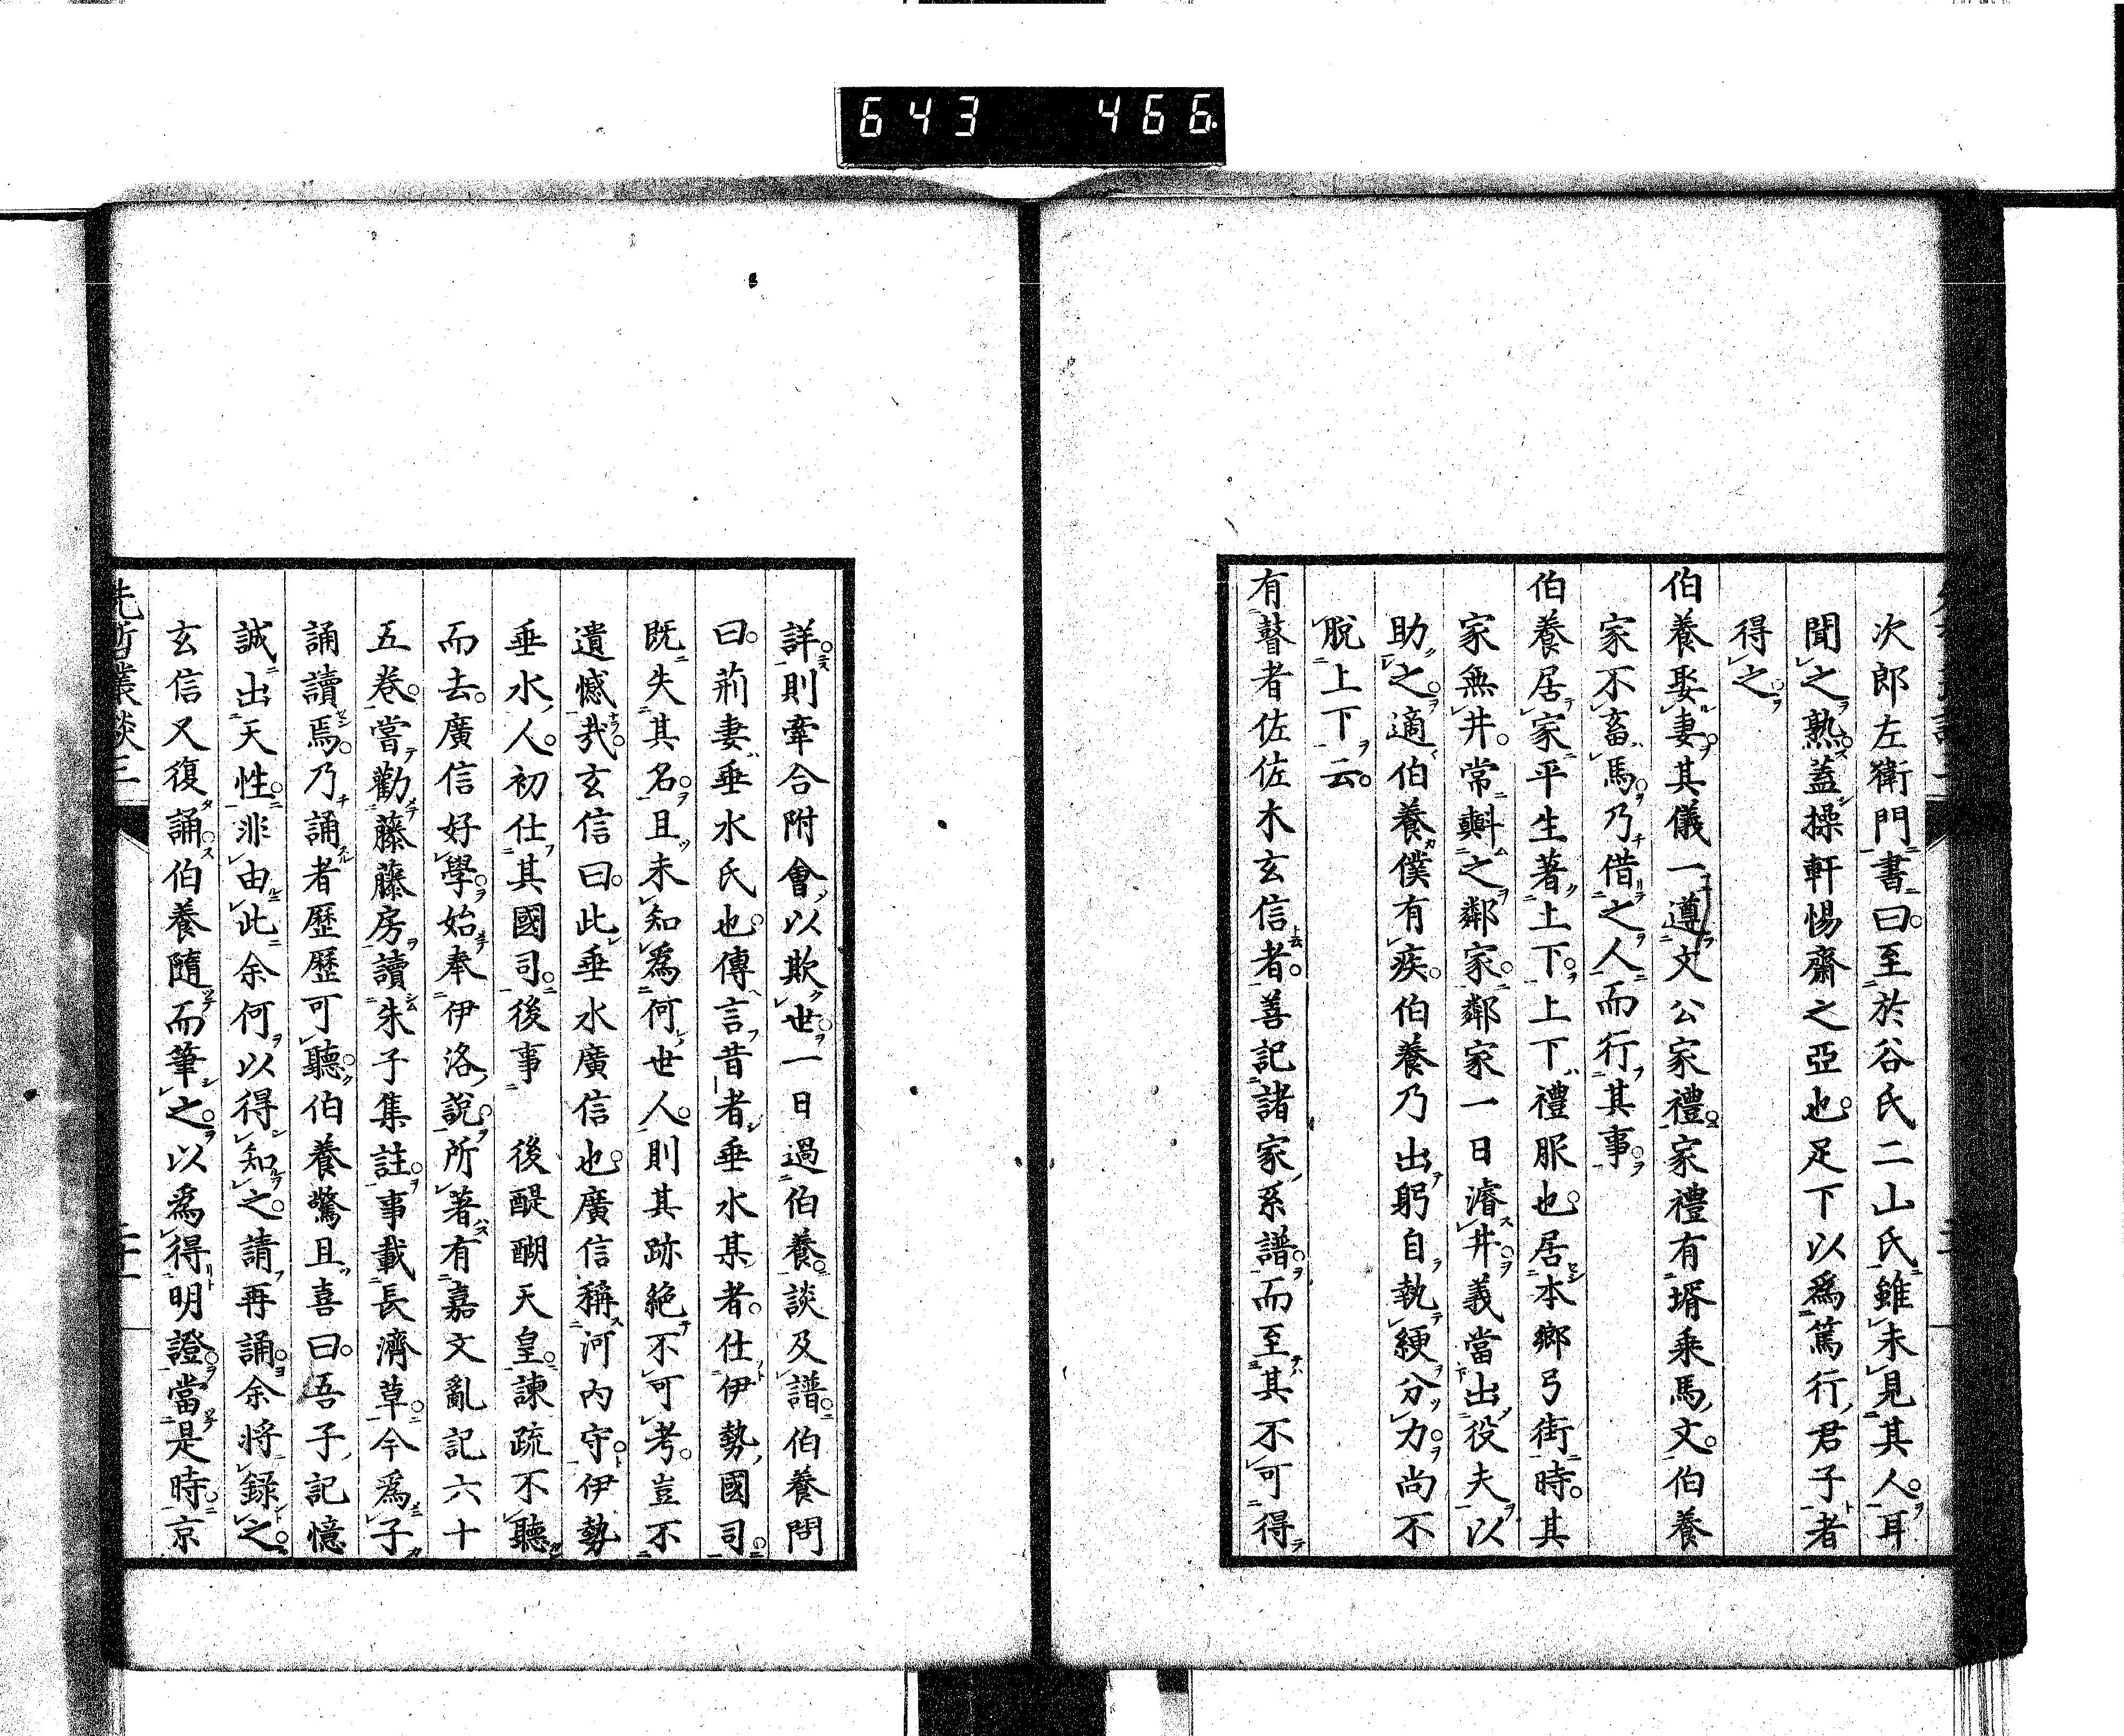 643 466
次郎左衛門書曰至於谷氏二山氏雖未見其人耳
聞之熟蓋操軒惕齋之亞也足下以爲篤行君子者
得之
伯養娶妻其儀一遵文公家禮家禮有壻乘馬文伯養
家不畜馬乃借之人而行其事
伯養居家平生著上下上下禮服也居本鄉弓街時其
家無井常㪺之鄰家鄰家一日濬井義當出役夫以
助之適伯養僕有疾伯養乃出躬自執綆分力尚不
脫上下云
有瞽者佐佐木玄信者善記諸家系譜而至其不可得
詳則牽合附會以欺世一日過伯養談及譜伯養問
曰荊妻垂水氏也傳言昔者垂水某者仕伊勢國司
既失其名且未知爲何世人則其跡絶不可考豈不
遺憾哉玄信曰此垂水廣信也廣信稱河內守伊勢
垂水人初仕其國司後事 後醍醐天皇諫疏不聽
而去廣信好學始奉伊洛說所著有嘉文亂記六十
五卷嘗勸藤藤房讀朱子集註事載長濟草今爲子
誦讀焉乃誦者歷歷可聽伯養驚且喜曰吾子記憶
誠出天性非由此余何以得知之請再誦余將録之
玄信又復誦伯養隨而筆之以爲得明證當是時京
先哲叢談三